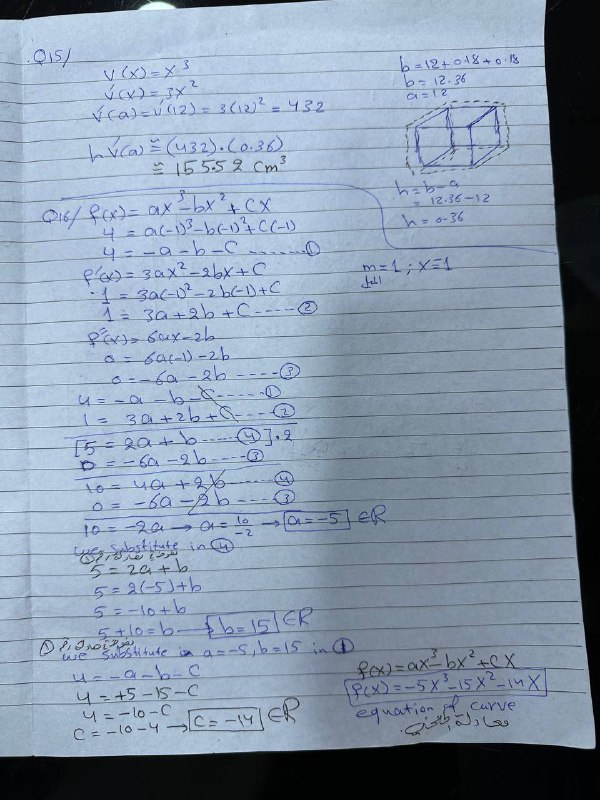 Q15/
V(x) = x³
V́(x) = 3x²
V́(a) = V́(12) = 3(12)² = 432
h V́(a) ≅ (432)·(0.36)
≅ 155.52 cm³
b = 12 + 0.18 + 0.18
b = 12.36
a = 12
h = b - a
= 12.36 - 12
h = 0.36
Q16/ f(x) = ax³ - bx² + cx
4 = a(-1)³ - b(-1)² + c(-1)
4 = -a - b - c ------ ①
f'(x) = 3ax² - 2bx + c
1 = 3a(-1)² - 2b(-1) + c
1 = 3a + 2b + c ---- ②
m = 1 ; x = 1
الميل
f''(x) = 6ax - 2b
0 = 6a(-1) - 2b
0 = -6a - 2b ---- ③
4 = -a - b - c ---- ①
1 = 3a + 2b + c ---- ②
[5 = 2a + b ---- ④] · 2
0 = -6a - 2b ---- ③
10 = 4a + 2b ---- ④
0 = -6a - 2b ---- ③
10 = -2a → a = 10/-2 → a = -5 ∈R
we substitute in ④
5 = 2a + b
5 = 2(-5) + b
5 = -10 + b
5 + 10 = b → b = 15 ∈R
we substitute in a = -5, b = 15 in ①
4 = -a - b - c
4 = +5 - 15 - c
4 = -10 - c
c = -10 - 4 → c = -14 ∈R
f(x) = ax³ - bx² + cx
f(x) = -5x³ - 15x² - 14x
equation of curve
معادلة المنحني